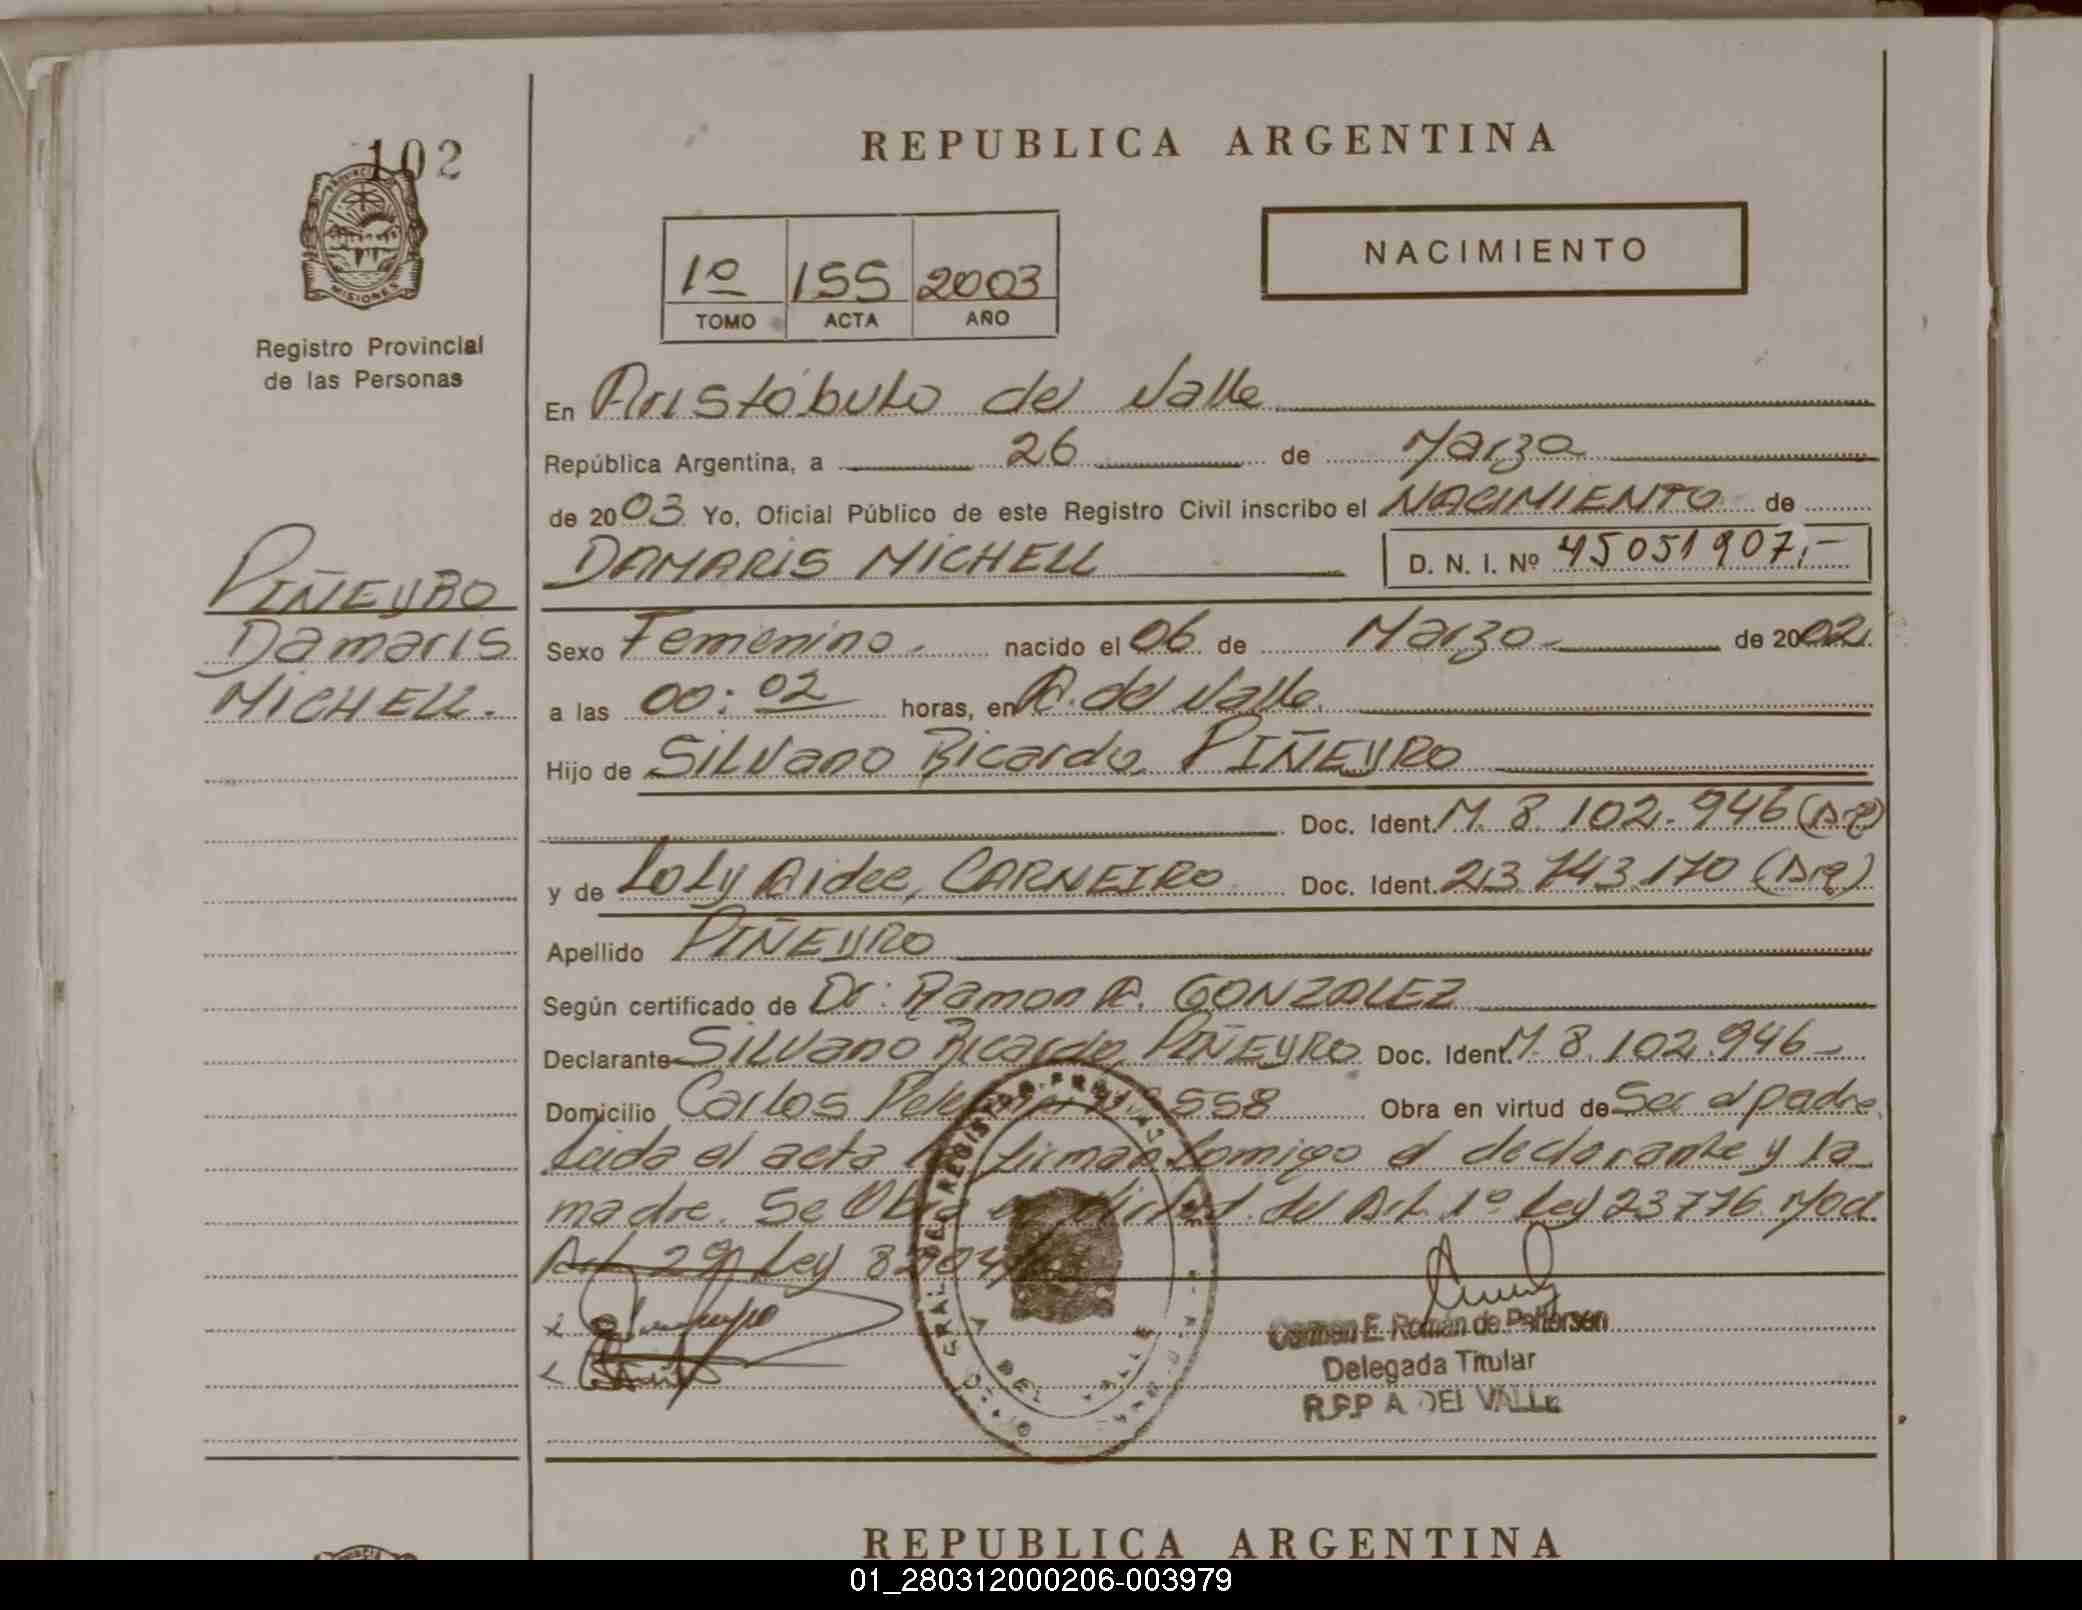 102
PROVINCIA DE
MISIONES
Registro Provincial
de las Personas
REPUBLICA ARGENTINA
1º 155 2003
TOMO ACTA AÑO
NACIMIENTO
En Aristóbulo del Valle
República Argentina, a 26 de Marzo
de 2003 Yo, Oficial Público de este Registro Civil inscribo el NACIMIENTO de
DAMARIS MICHELL D. N. I. Nº 45051907,-
PIÑEYRO
Damaris
MICHELL.
Sexo Femenino. nacido el 06 de Marzo de 2002.
a las 00:02 horas, en A. del Valle.
Hijo de Silvano Ricardo, PIÑEYRO
Doc. Ident. M. 8.102.946 (Arg)
y de Loly Aidee, CARNEIRO Doc. Ident. 23.743.170 (Arg)
Apellido PIÑEYRO
Según certificado de Dr: Ramon A. GONZALEZ
Declarante Silvano Ricardo PIÑEYRO Doc. Ident. M. 8.102.946-
Domicilio Carlos 558 Obra en virtud de Ser el padre.
Leida el acta la firman Comigo el declarante y la
madre. Se Obra en Virtud del Art. 1º Ley 23776 Mod.
Art 29 Ley 8204
Carmen E. Román de Pettersen
Delegada Titular
R.P.P A DEL VALLE
A DEL VALLE
REPUBLICA ARGENTINA
01_280312000206-003979